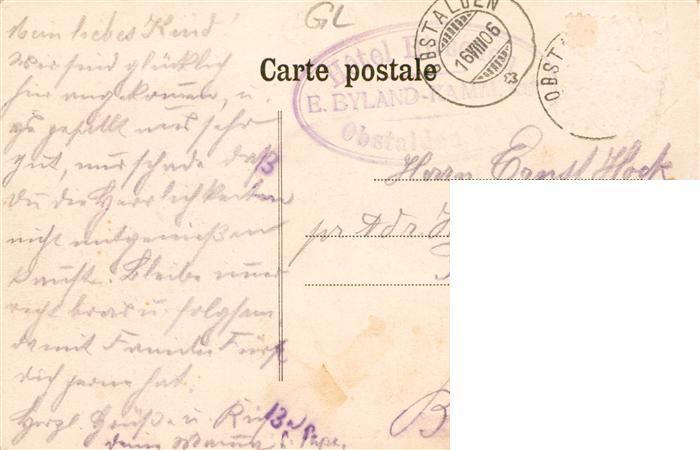 Mein liebes Kind!
Wir sind glücklich
hier angekommen, u.
es gefällt uns sehr
gut, nur schade daß
Du die Herrlichkeiten
nicht mitgenießen
kannst. Bleibe nur
recht brav u. folgsam
damit Familie Fürst
dich gerne hat.
Herzl. Grüße u.
deine Mama u. Papa.
GL
Carte postale
OBSTALDEN
16 VIII 06
OBSTA
Hôtel
E. BYLAND-KAMM
Obstalden
Herrn Ernst Hock
pr Adr.
B